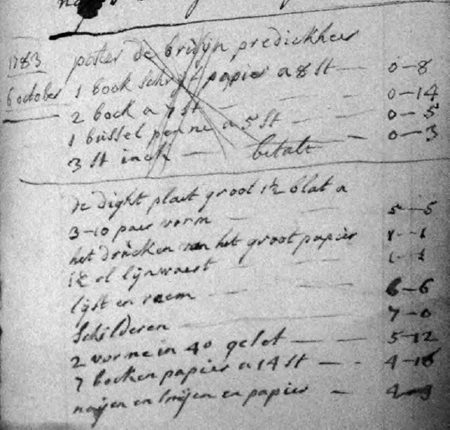 1783 pater de bruijn predickheer
6 october 1 boeck schrijf papier a 8 st — 0-8
2 boeck a 7 st — 0-14
1 bussel penne a 5 st — 0-5
3 st inck — betalt — 0-3
de dight plaet groot 1½ blat a
3-10 paer vorm — 5-5
het drucken van het groot papier 1-1
el lijnwaet — 1-1
lijst en raem — 6-6
schilderen — 7-0
2 vorme in 40 geset — 5-12
7 boecken papier a 14 st — 4-18
en papier —